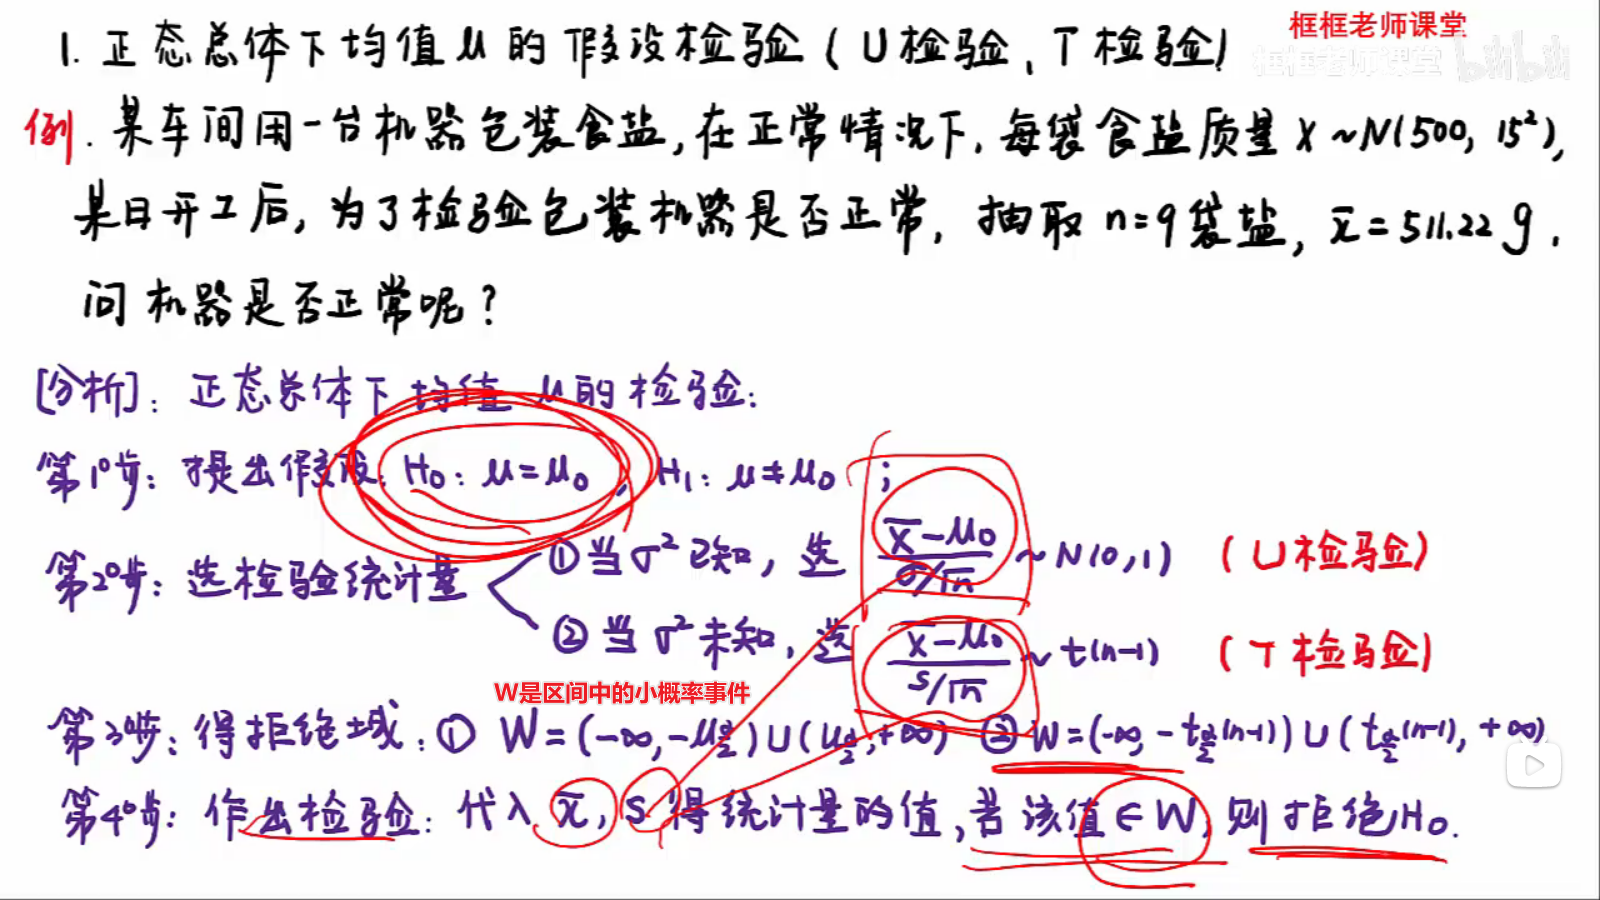 框框老师课堂
框框老师课堂 bilibili
1. 正态总体下均值μ的假设检验(U检验、T检验)
例. 某车间用一台机器包装食盐,在正常情况下,每袋食盐质量X~N(500, 15²),
某日开工后,为了检验包装机器是否正常,抽取n=9袋盐,x̄=511.22g.
问机器是否正常呢?
[分析]:正态总体下均值μ的检验:
第1步:提出假设. H₀: μ=μ₀, H₁: μ≠μ₀;
第2步:选检验统计量
①当σ²已知,选 (x̄-μ₀)/(σ/√n) ~ N(0,1) (U检验)
②当σ²未知,选 (x̄-μ₀)/(s/√n) ~ t(n-1) (T检验)
W是区间中的小概率事件
第3步:得拒绝域:① W=(-∞,-μ_{α/2})∪(μ_{α/2},+∞) ② W=(-∞,-t_{α/2}(n-1))∪(t_{α/2}(n-1),+∞)
第4步:作出检验:代入x̄,S得统计量的值,若该值∈W,则拒绝H₀.